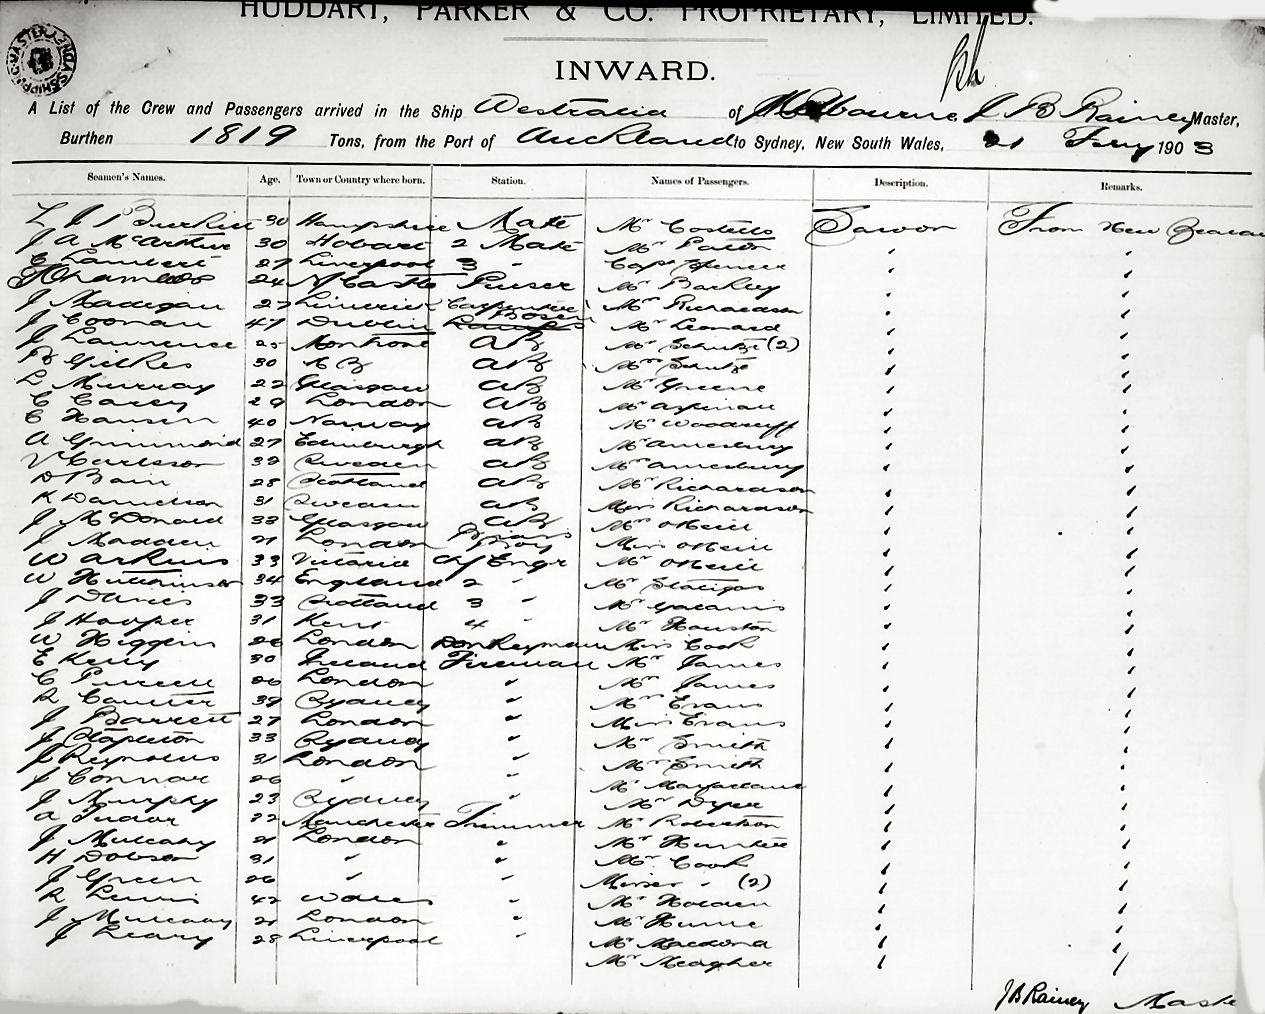 HUDDART, PARKER & CO. PROPRIETARY, LIMITED.
INWARD.
A List of the Crew and Passengers arrived in the Ship Westralia of Melbourne J B Rainey Master,
Burthen 1819 Tons, from the Port of Auckland to Sydney, New South Wales, 21 Fery 1903
Seamen's Names. Age. Town or Country where born. Station. Names of Passengers. Description. Remarks.
L J 30 Hampshire Mate Mr Costello Saloon From New
J A McArthur 30 Hobart 2 Mate Mr
C Lambert 27 Liverpool 3 " Capt Spencer "
Chambers 24 NCastle Purser Mr Barkley "
J Madigan 27 Limerick Carpenter Mr Richardson "
J Coonan 47 Dublin Bosen Lamps Mr Leonard "
J Lawrence 25 Montrose AB Mr Schutze (2) "
Gilkes 30 N Z AB Mrs Schutze "
L Murray 22 Glasgow AB Mr Greene "
C Carey 29 London AB Mr Aspinall "
C Hansen 40 Norway AB Mr Woodruff "
A Grimmond 27 Edinburgh AB Mr Amesbury "
V Carlsson 32 Sweden AB Mrs Amesbury "
D Bain 28 Scotland AB Mr Richardson "
K Danielson 31 Sweden AB Miss Richardson "
J McDonald 33 Glasgow AB Mr ONeill "
J Madden 21 London Boy Miss ONeill "
W 33 Victoria Cf Engr Mr ONeill "
W Hutchinson 34 England 2 " Mr "
J Davies 33 Scotland 3 " Mr "
J Hooper 31 Kent 4 " Mr Houston "
W Higgins 26 London Donkeyman Miss Cook "
E Kelly 30 Ireland Fireman Mr James "
C Purcell 26 London " Mr James "
R Coulter 39 Sydney " Mr Evans "
J Barrett 27 London " Miss Evans "
J Stapleton 33 Sydney " Mr Smith "
J Reynolds 31 London " Mr Smith "
J Connor 26 " " Mr Macfarlane "
J Murphy 23 Sydney " Mr Dyer "
A Tudor 22 Manchester Trimmer Mr Robertson "
J Mulcahy 21 London " Mr Hunter "
H Dobson 31 " " Mr Cook "
J Green 26 " " Misses " (2) "
R Lewis 42 Wales " Mr Holden "
J Mulcahy 21 London " Mr Hume "
J Leary 28 Liverpool " Mr "
Mr Meagher "
J B Rainey Master